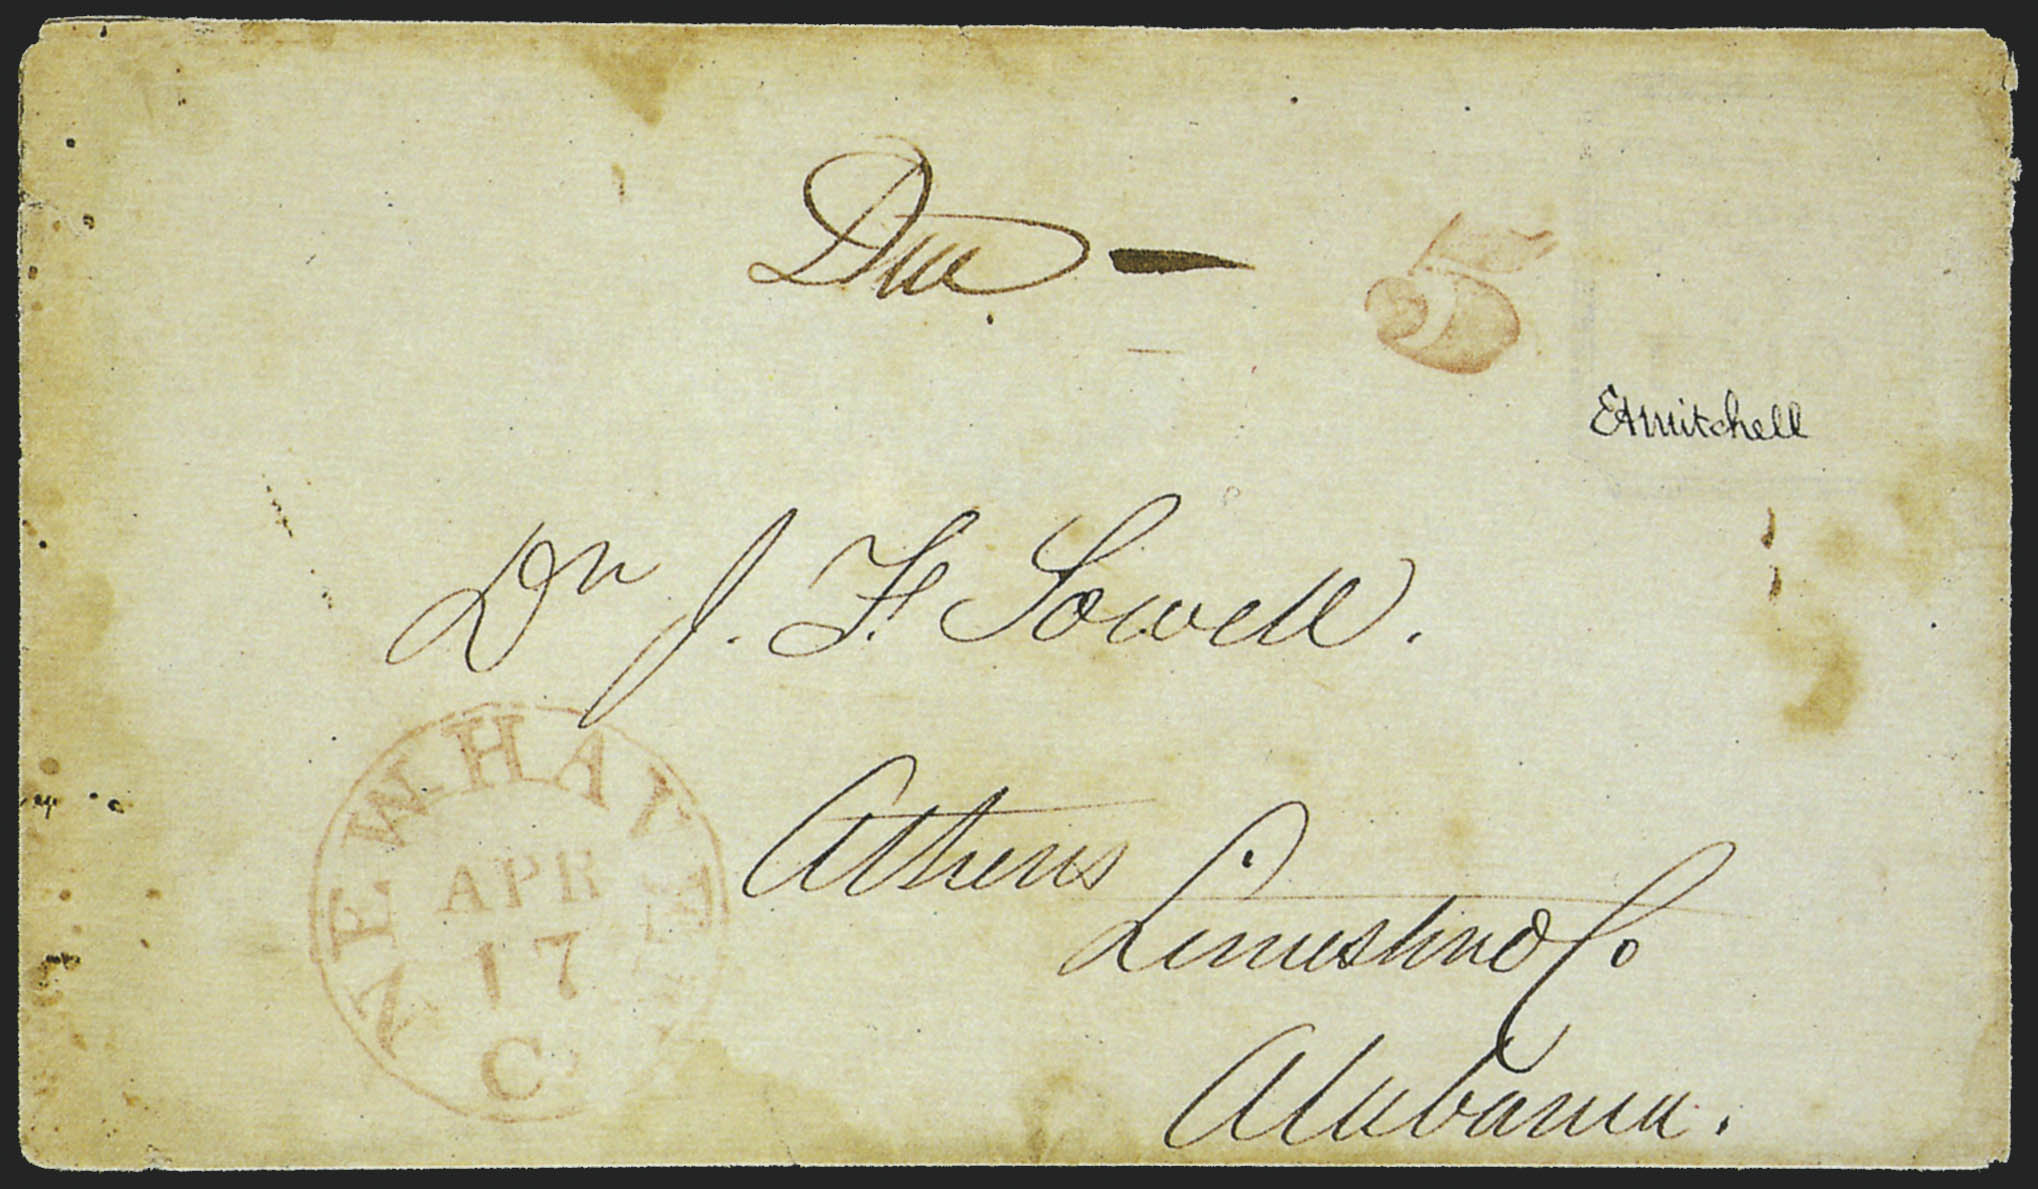 Due — 5
EAMitchell
Dr J. F. Sowell.
Athens
Limestone Co
Alabama.
NEW HAVEN
APR
17
C